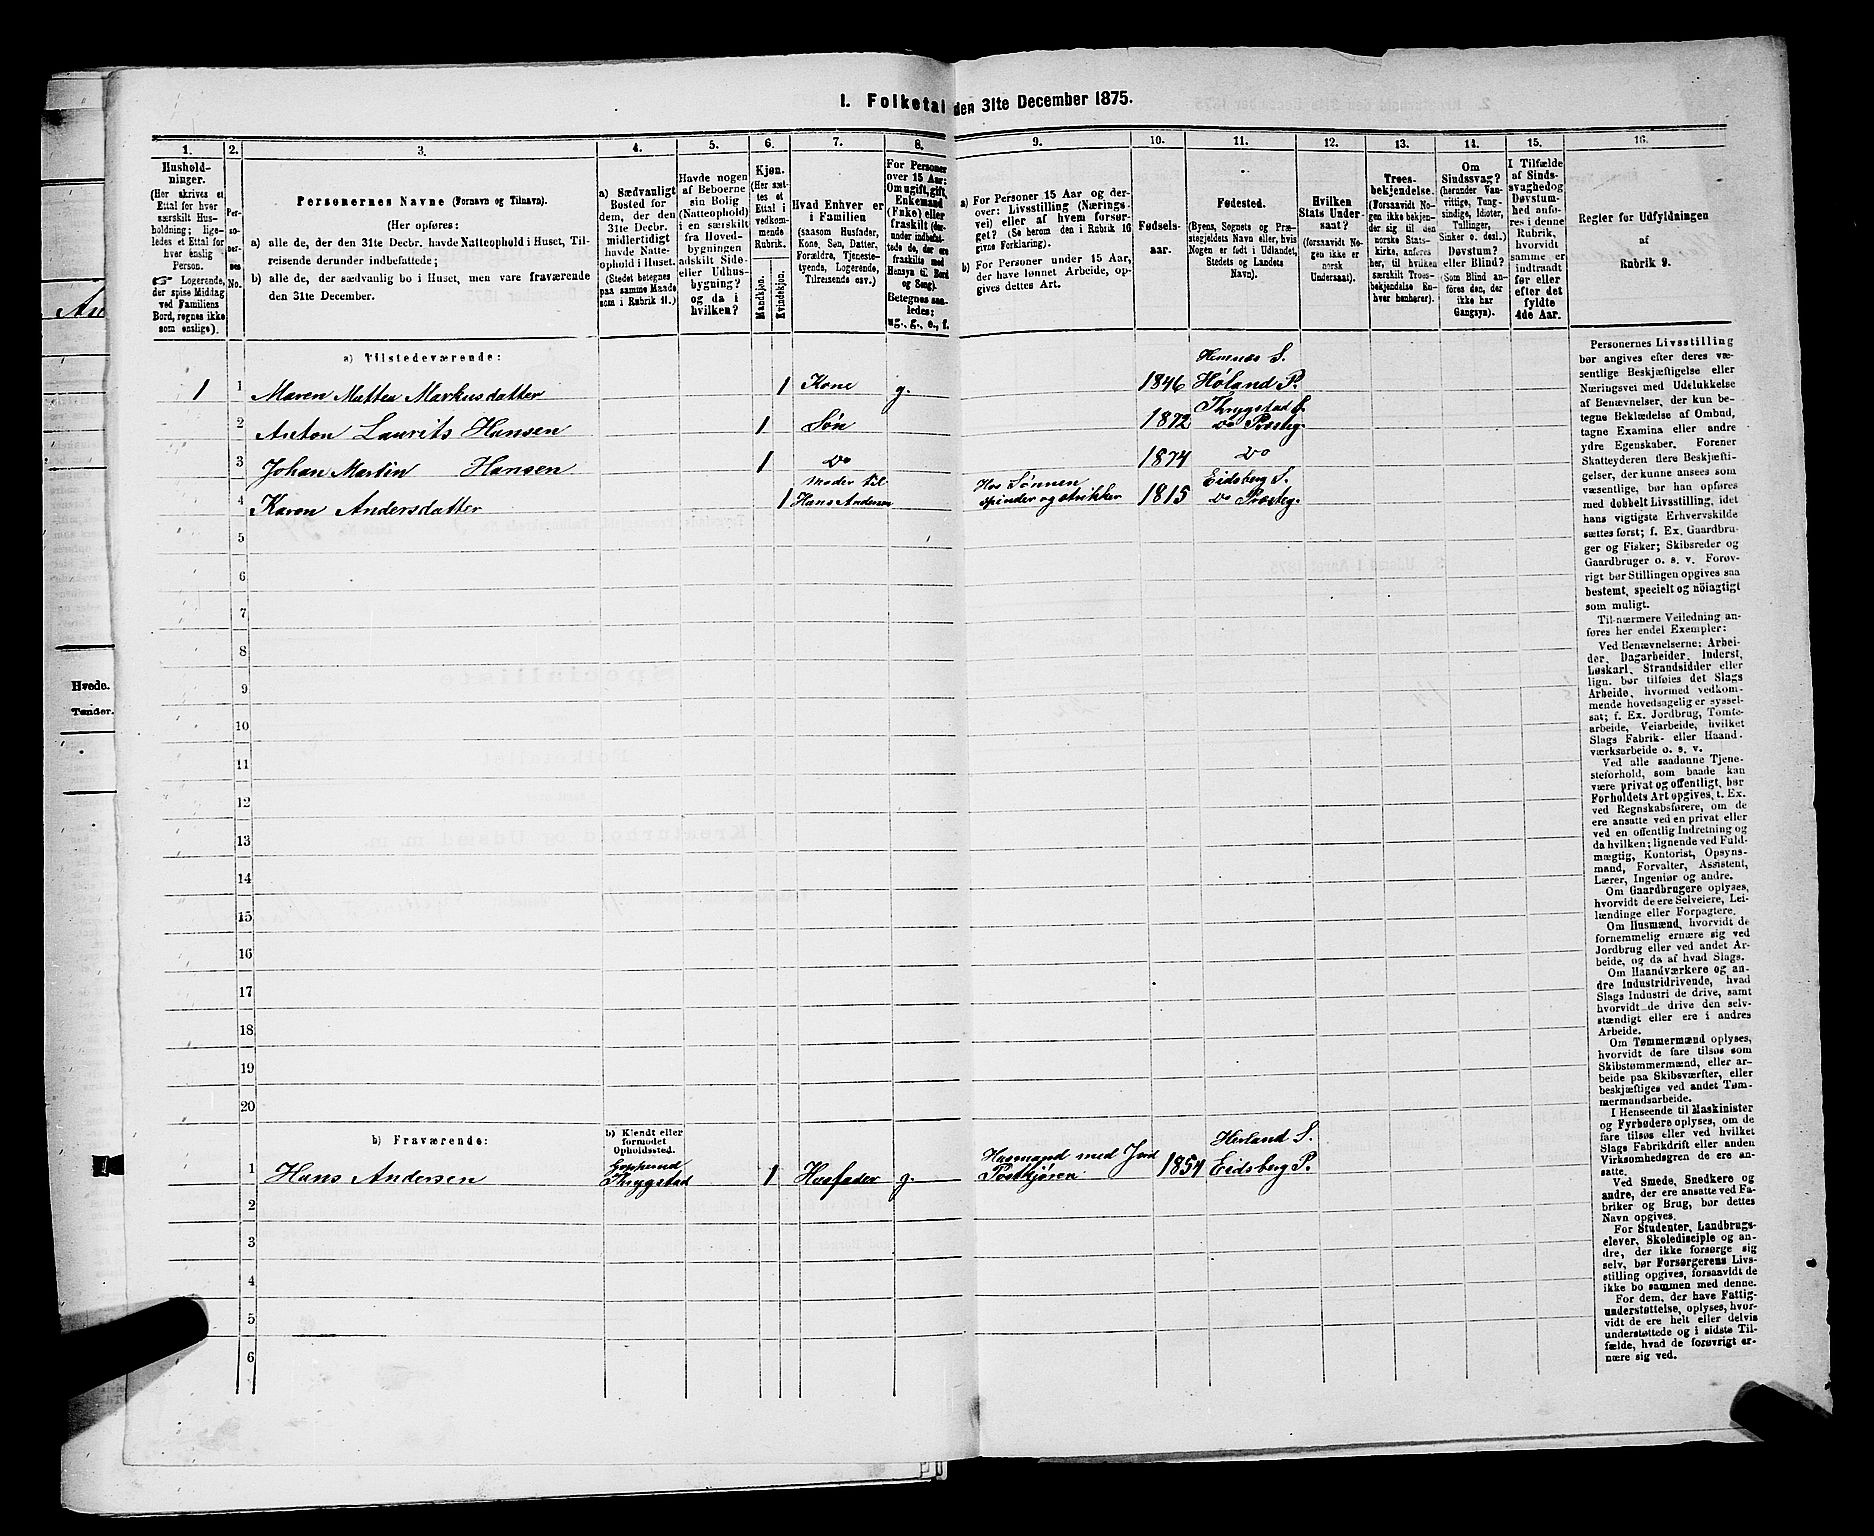 1. Folketal den 31te December 1875.
1.
2.
3.
4.
5.
6.
7.
8.
9.
10.
11.
12.
13.
14.
15.
16.
Hushold-
ninger.
(Her skrives et
Ettal for hver
særskilt Hus-
holdning; lige-
ledes et Ettal for
hver enslig
Person.
☞ Logerende,
der spise Middag
ved Familiens
Bord, regnes ikke
som enslige).
Per-
so-
ner-
nes
No.
Personernes Navne (Fornavn og Tilnavn).
(Her opføres:
a) alle de, der den 31te Decbr. havde Natteophold i Huset, Til-
reisende derunder indbefattede;
b) alle de, der sædvanlig bo i Huset, men vare fraværende
den 31te December.
a) Sædvanligt
Bosted for
dem, der den
31te Decbr.
midlertidigt
havde Natte-
ophold i Huset.
(Stedet betegnes
paa samme Maade
som i Rubrik 11.)
Havde nogen
af Beboerne
sin Bolig
(Natteophold)
i en særskilt
fra Hoved-
bygningen
adskilt Side-
eller Udhus-
bygning?
og da i
hvilken?
Kjøn.
(Her sæt-
tes et
Ettal i
vedkom-
mende
Rubrik.
Mandkjøn.
Kvindekjøn.
Hvad Enhver er
i Familien
(saasom Husfader,
Kone, Søn, Datter,
Forældre, Tjeneste-
tyende, Logerende,
Tilreisende osv.)
For Personer
over 15 Aar:
Om ugift, gift,
Enkemand
(Enke) eller
fraskilt (der-
under indbefat-
tede de, der ere
fraskilte med
Hensyn til Bord
og Seng).
Betegnes saa-
ledes:
ug., g., e., f.
a) For Personer 15 Aar og der-
over: Livsstilling (Nærings-
vei) eller af hvem forsør-
get? (Se herom den i Rubrik 16
givne Forklaring).
b) For Personer under 15 Aar,
der have lønnet Arbeide, op-
gives dettes Art.
Fødsels-
aar.
Fødested.
(Byens, Sognets og Præ-
stegjeldets Navn eller, hvis
Nogen er født i Udlandet,
Stedets og Landets
Navn).
Hvilken
Stats Under-
saat?
(forsaavidt No-
gen ikke er
norsk
Undersaat).
Troes-
bekjendelse.
(Forsaavidt No-
gen ikke bekjen-
der sig til den
norske Stats-
kirke, anføres
her, til hvilken
særskilt Troes-
bekjendelse En-
hver henhører).
Om
Sindssvag?
(herunder Van-
vittige, Tung-
sindige, Idioter,
Tullinger,
Sinker o. desl.)
Døvstum?
eller Blind?
(Som Blind an-
føres den, der
ikke har
Gangsyn).
I Tilfælde
af Sinds-
svaghed og
Døvstum-
hed anfø-
res i denne
Rubrik,
hvorvidt
samme er
indtraadt
før eller
efter det
fyldte
4de Aar.
Regler for Udfyldningen
af
Rubrik 9.
a) Tilstedeværende:
1 1 Maren Mathea Markusdatter 1 Kone g. 1846 Hemnæs S. Høland P.
2 Anton Laurits Hansen 1 Søn 1872 Thrygstad S. Do Præsteg.
3 Johan Martin Hansen 1 Do 1874 Do
4 Karen Andersdatter 1 Moder til Hans Andersen Hos Sønnen spinder og strikker 1815 Eidsberg S. Do Præsteg.
5
6
7
8
9
10
11
12
13
14
15
16
17
18
19
20
b) Fraværende:
b) Kjendt eller
formodet
Opholdssted.
1 Hans Andersen Thrygstad 1 Husfader g. Husmand med Jord Postkjøren 1854 Herland S. Eidsberg P.
2
3
4
5
6
Personernes Livsstilling
bør angives efter deres væ-
sentlige Beskjæftigelse eller
Næringsvei med Udelukkelse
af Benævnelser, der kun be-
tegne Beklædelse af Ombud,
tagne Examina eller andre
ydre Egenskaber. Forener
Skatteyderen flere Beskjæfti-
gelser, der kunne ansees som
væsentlige, bør han opføres
med dobbelt Livsstilling, idet
hans vigtigste Erhvervskilde
sættes først; f. Ex. Gaardbru-
ger og Fisker; Skibsreder og
Gaardbruger o. s. v. Forøv-
rigt bør Stillingen opgives saa
bestemt, specielt og nöiagtigt
som muligt.
Til nærmere Veiledning an-
føres her endel Exempler:
Ved Benævnelserne: Arbei-
der, Dagarbeider, Inderst,
Løskarl, Strandsidder eller
lign. bør tilføies det Slags
Arbeide, hvormed vedkom-
mende hovedsagelig er syssel-
sat; f. Ex. Jordbrug, Tømte-
arbeide, Veiarbeide, hvilket
Slags Fabrik- eller Haand-
værksarbeide o. s. v.
Ved alle saadanne Tjene-
steforhold, som baade kan
være privat og offentligt, bør
Forholdets Art opgives, t. Ex.
ved Regnskabsførere, om de
ere ansatte ved en privat eller
ved en offentlig Indretning og
da hvilken; lignende ved Fuld-
mægtig, Kontorist, Opsyns-
mand, Forvalter, Assistent,
Lærer, Ingeniør og andre.
Om Gaardbrugere oplyses,
hvorvidt de ere Selveiere, Lei-
lændinge eller Forpagtere.
Om Husmænd, hvorvidt de
fornemmelig ernære sig ved
Jordbrug eller ved andet Ar-
beide, og da af hvad Slags.
Om Haandværkere og an-
dre Industridrivende, hvad
Slags Industri de drive, samt
hvorvidt de drive den selv-
stændigt eller ere i andres
Arbeide.
Om Tømmermænd oplyses,
hvorvidt de fare tilsøs som
Skibstømmermænd, eller ar-
beide paa Skibsværfter, eller
beskjæftiges ved andet Tøm-
mermandsarbeide.
I Henseende til Maskinister
og Fyrbødere oplyses, om de
fare tilsøs eller ved hvilket
Slags Fabrikdrift eller anden
Virksomhedsgren de ere an-
satte.
Ved Smede, Snedkere og
andre, der ere ansatte ved Fa-
briker og Brug, bør dettes
Navn opgives.
For Studenter, Landbrugs-
elever, Skoledisciple og an-
dre, der ikke forsørge sig
selv, bør Forsørgerens Livs-
stilling opgives, forsaavidt de
ikke bo sammen med denne.
For dem, der have Fattig-
understøttelse, oplyses, hvor-
vidt de ere helt eller delvis
understøttede og i sidste Til-
fælde, hvad de forøvrigt er-
nære sig ved.
Hvede.
Tønder.